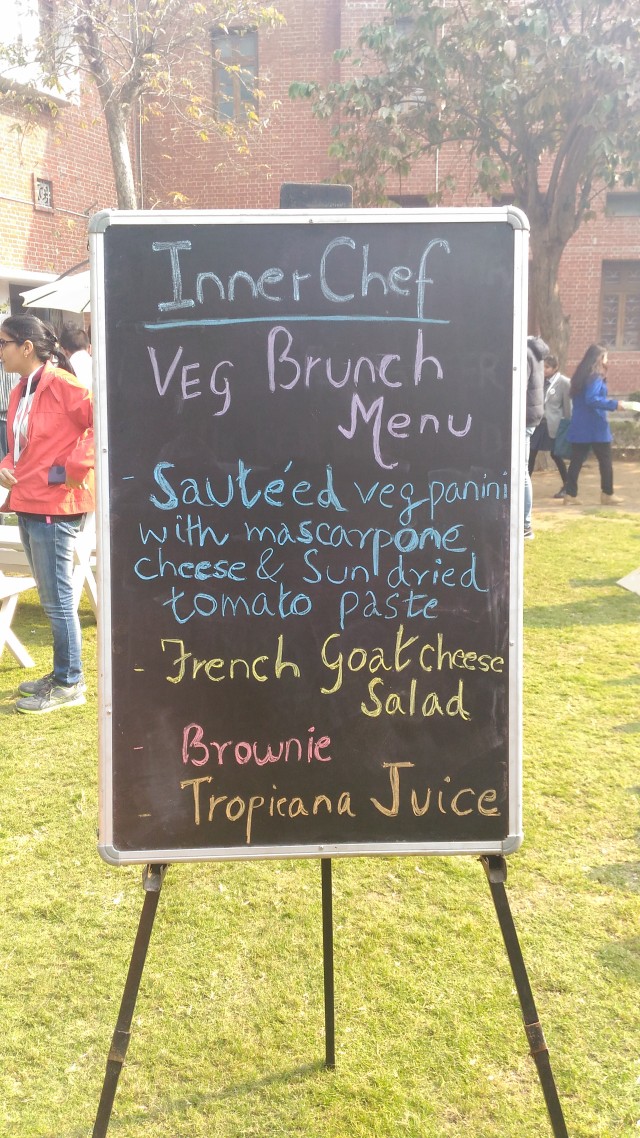 InnerChef
Veg Brunch
Menu
- Sauteéed veg panini
with mascarpone
cheese & Sun dried
tomato paste
- French Goat cheese
Salad
- Brownie
- Tropicana Juice